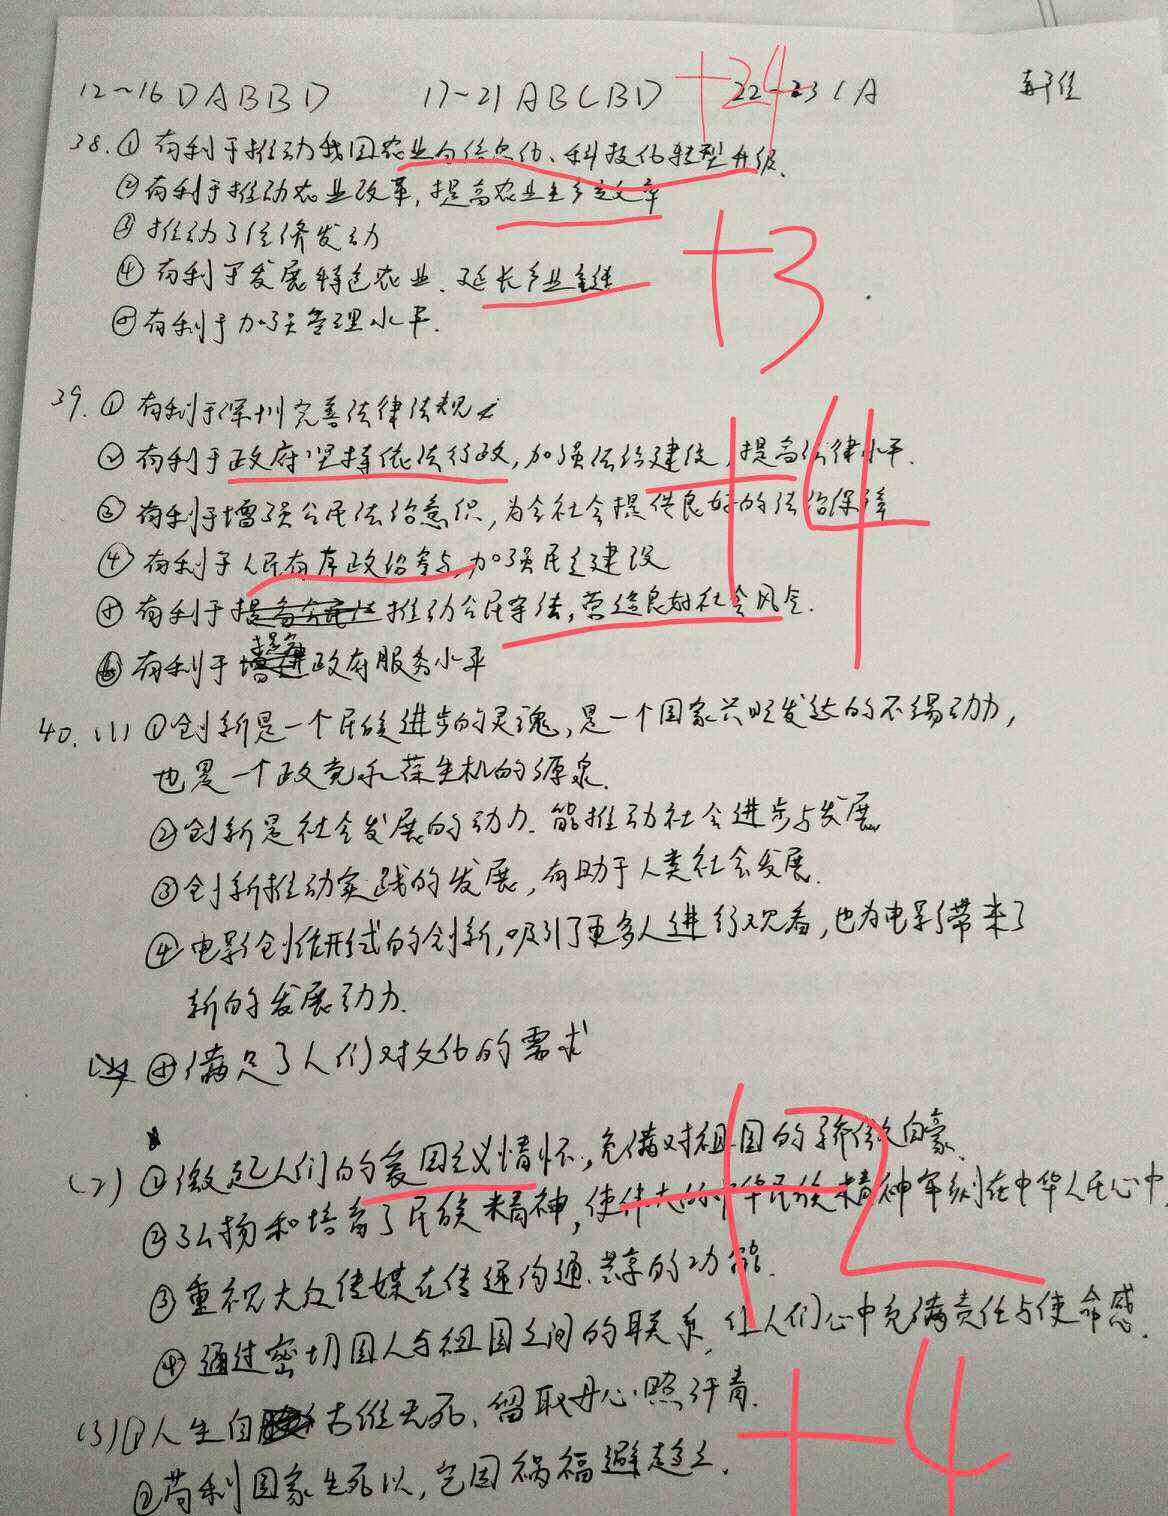 12~16 DABBD 17~21 ABCBD 22~23 CA
+24
38.① 有利于推动我国农业向信息化、科技化转型升级.
②有利于推动农业改革,提高农业生产效率
③ 推动了经济发动
④ 有利于发展特色农业、延长产业链
⑤有利于加强管理水平.
+3
39.① 有利于深圳完善法律法规
② 有利于政府坚持依法行政,加强法治建设,提高法律水平.
③ 有利于增强公民法治意识,为全社会提供良好的法治保障
④ 有利于人民有序政治参与,加强民主建设
⑤ 有利于推动公民守法,营造良好社会风气.
⑥ 有利于提高政府服务水平
+4
40.(1) ①创新是一个民族进步的灵魂,是一个国家兴旺发达的不竭动力,
也是一个政党永葆生机的源泉.
②创新是社会发展的动力.能推动社会进步与发展
③创新推动实践的发展,有助于人类社会发展.
④电影创作形式的创新,吸引了更多人进行观看,也为电影带来了
新的发展动力.
⑤满足了人们对文化的需求
(2) ①激起人们的爱国主义情怀,充满对祖国的骄傲自豪.
②弘扬和培育了民族精神,使伟大的中华民族精神牢刻在中华人民心中,
③重视大众传媒在传递沟通.共享的功能.
④通过密切国人与祖国之间的联系,让人们心中充满责任与使命感.
+2
(3)①人生自古谁无死、留取丹心照汗青.
②苟利国家生死以,岂因祸福避趋之.
+4